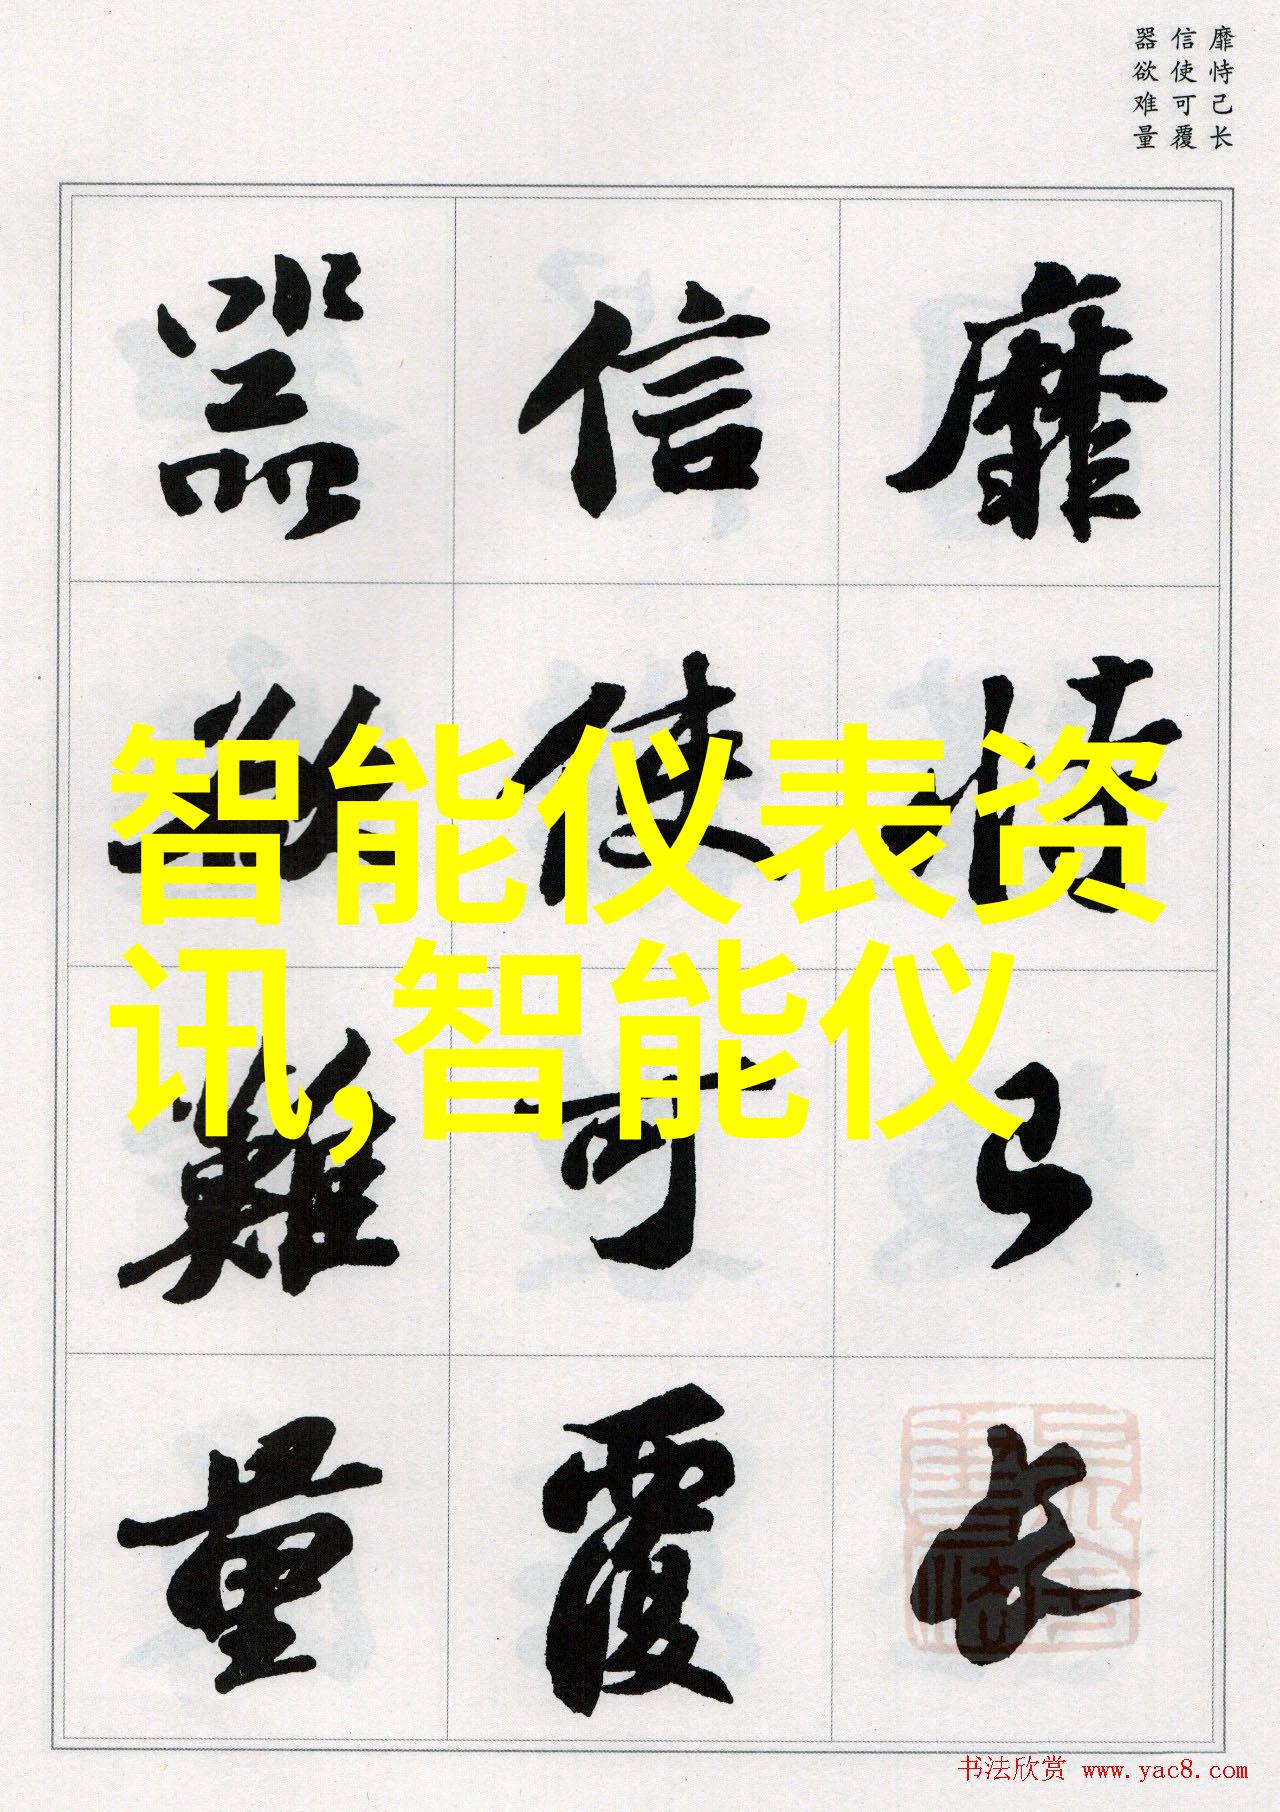 靡恃己长
信使可覆
器欲难量
靡恃己长
信使可覆
器欲難量
智能仪表资
讯,智能仪
书法欣赏 www.yac8.com